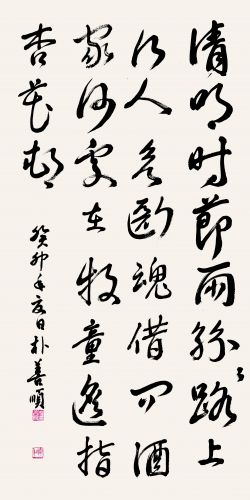 清明时節雨紛々路上
行人欲断魂借问酒
家何处在牧童遥指
杏花村
癸卯年夏日朴善順